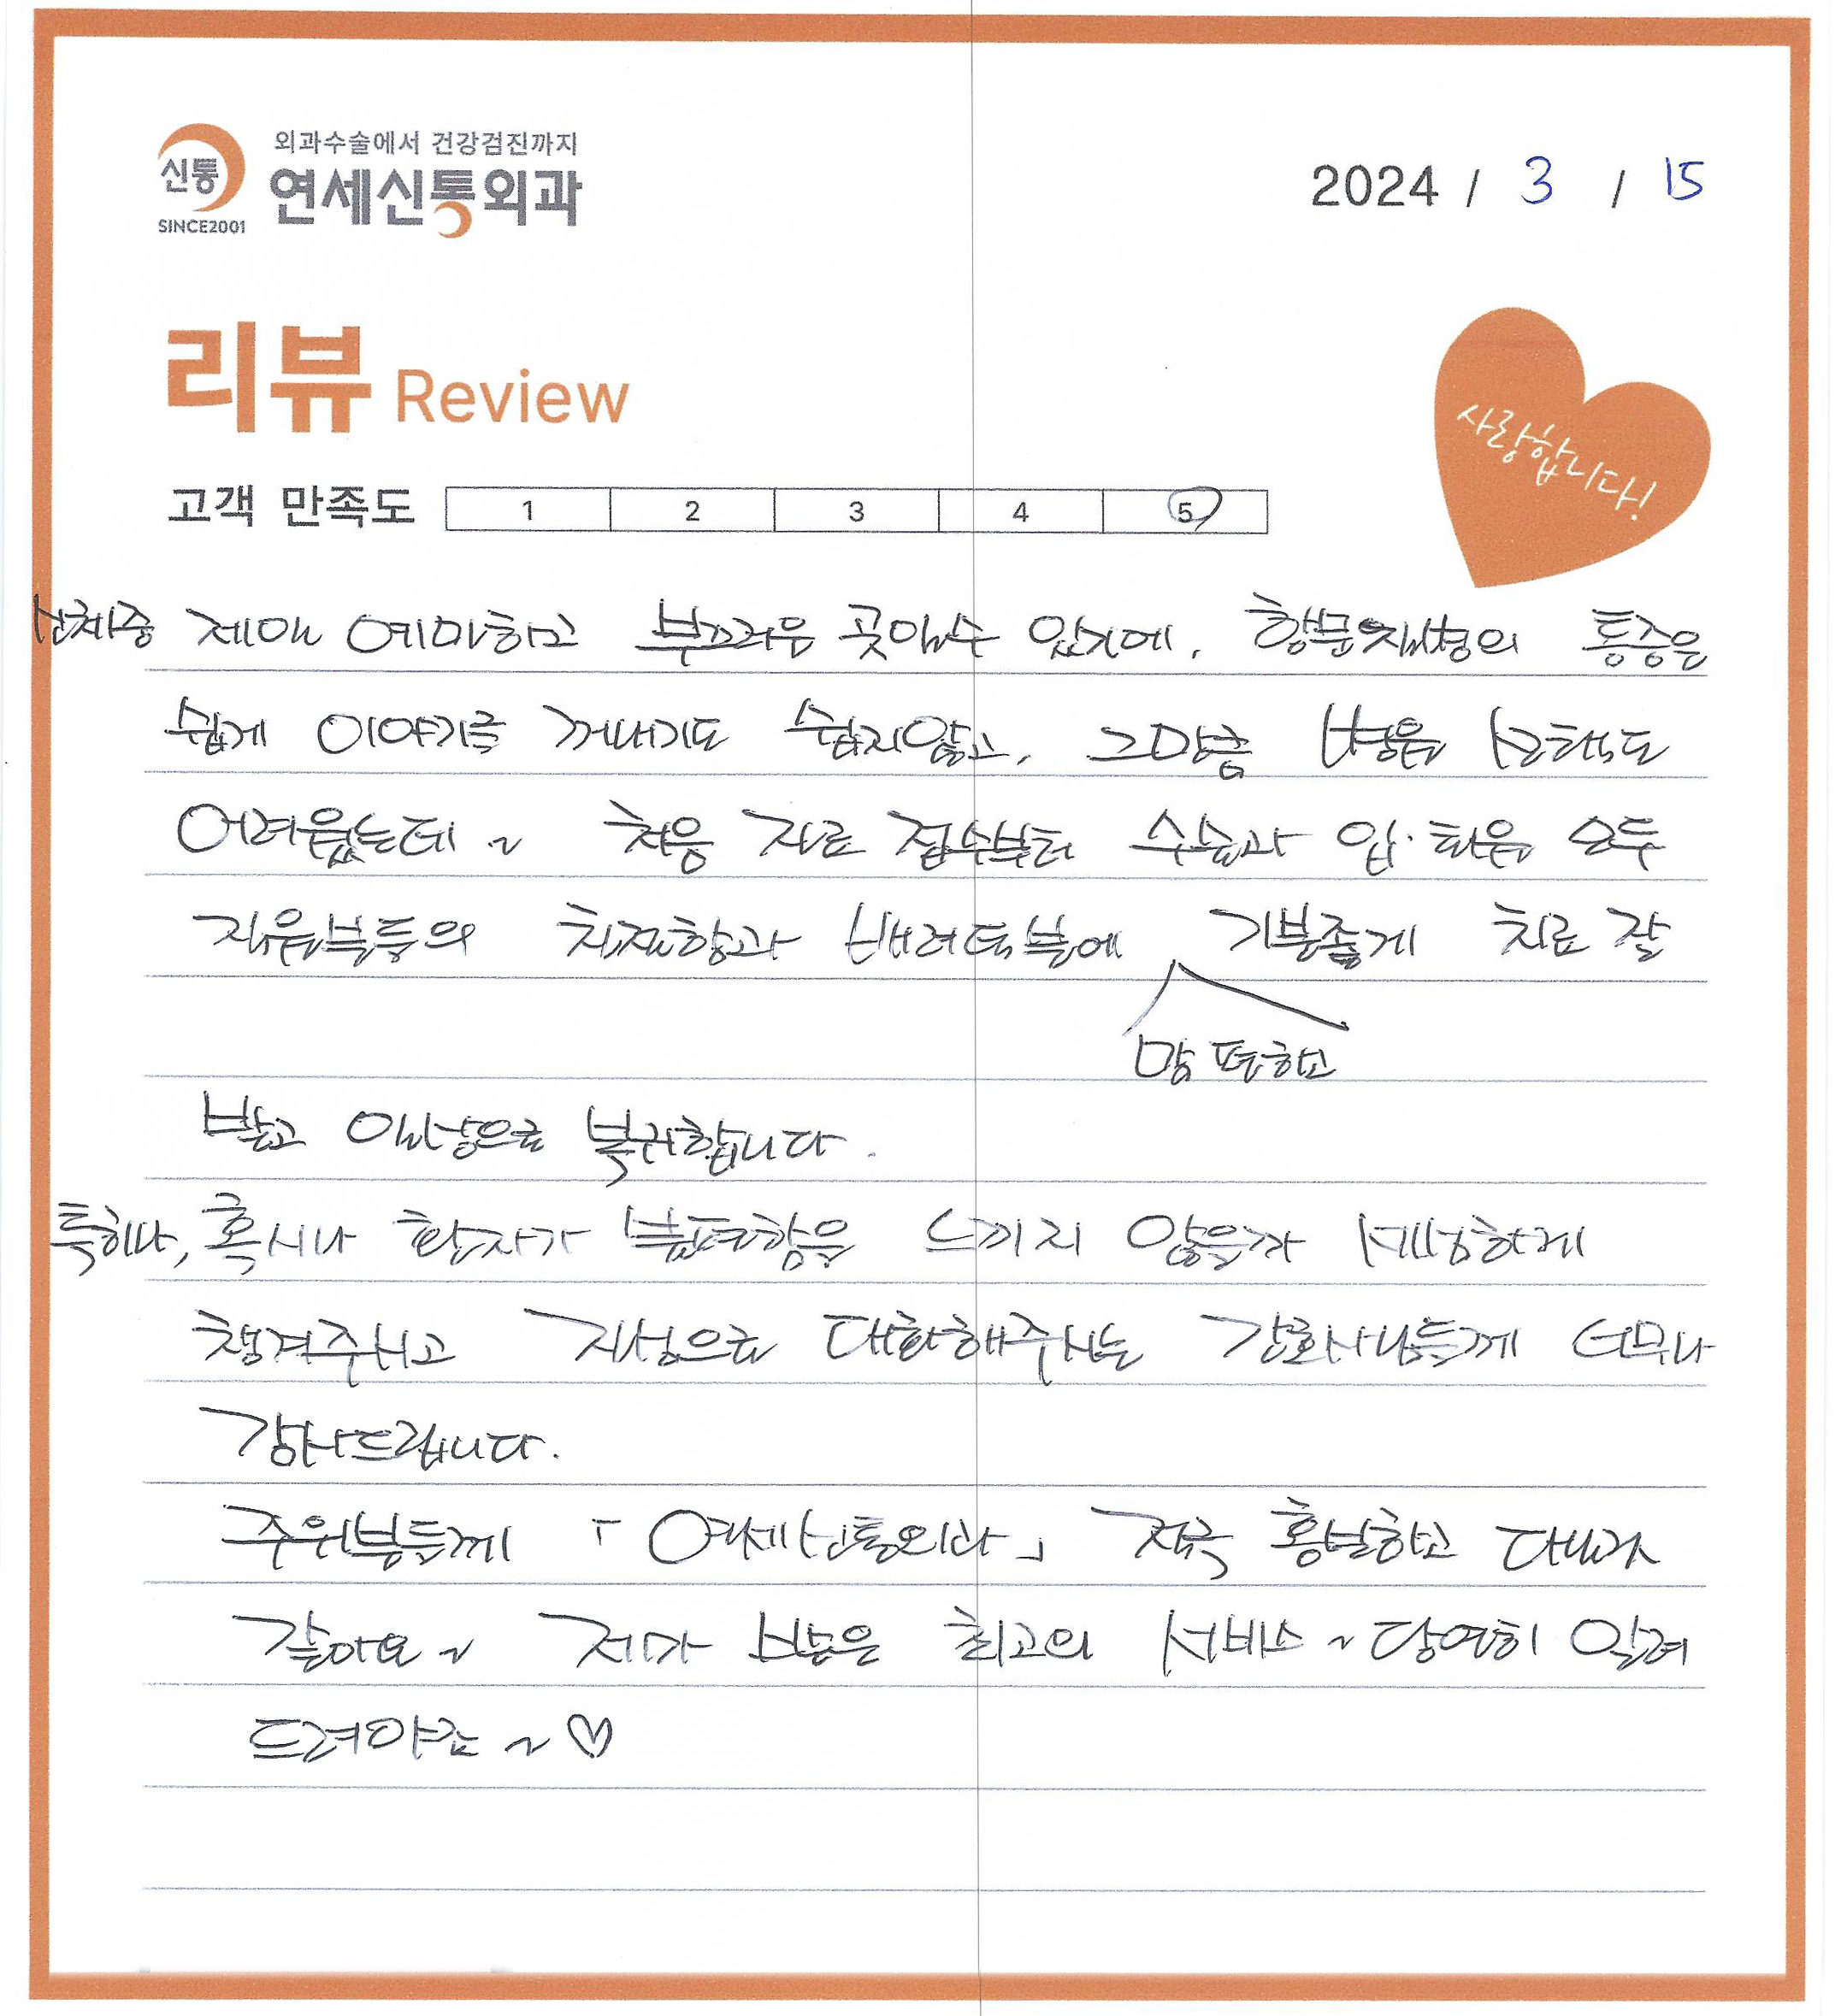 신통
SINCE2001
외과수술에서 건강검진까지
연세신통외과
2024 / 3 / 15
리뷰 Review
사랑합니다!
고객 만족도 1 2 3 4 5
신체중 제애 예미하고 부끄러운 곳일수 있기에, 항문질병의 통증은
쉽게 이야기를 꺼내기도 쉽지않고, 그만큼 병원 선택도
어려웠는데~ 처음 진료 접수부터 수술과 입·퇴원 모두
직원분들의 친절함과 배려덕분에 기분좋게 치료 잘
맘 편하고
받고 일상으로 복귀합니다.
특히나, 혹시나 환자가 불편함을 느끼지 않을까 세심하게
챙겨주시고 진심으로 대화해주시는 간호사님들께 너무나
감사드립니다.
주위분들께 「연세신통외과」 적극 홍보하고 다닐것
같아요~ 제가 받은 최고의 서비스~ 당연히 알려
드려야죠~♡